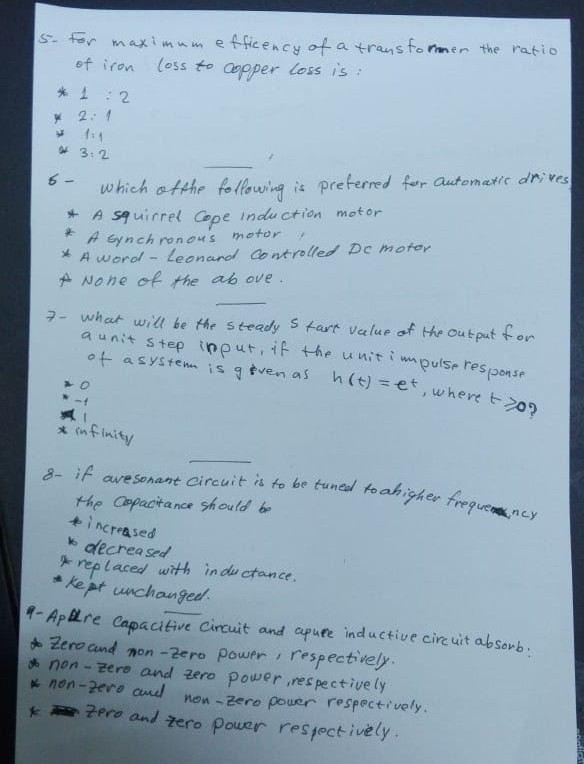 5- For maximum efficency of a transformer the ratio
of iron loss to copper loss is :
* 1 : 2
* 2 : 1
* 1:1
* 3:2
6- which of the following is preferred for automatic drives
* A squirrel Cape induction motor
* A synchronous motor
* A word - Leonard Controlled Dc motor
* None of the above.
7- what will be the steady start value of the output for
a unit step input, if the unit impulse response
of a system is given as h(t) = et, where t ≥0?
* 0
* -1
* 1
* infinity
8- if a resonant circuit is to be tuned to a higher frequency
the Capacitance should be
* increased
* decreased
* replaced with inductance.
* kept unchanged.
9- A pure Capacitive circuit and a pure inductive circuit absorb:
* Zero and non-zero power, respectively.
* non-zero and zero power, respectively
* non-zero and non-zero power respectively.
* Zero and zero power respectively.